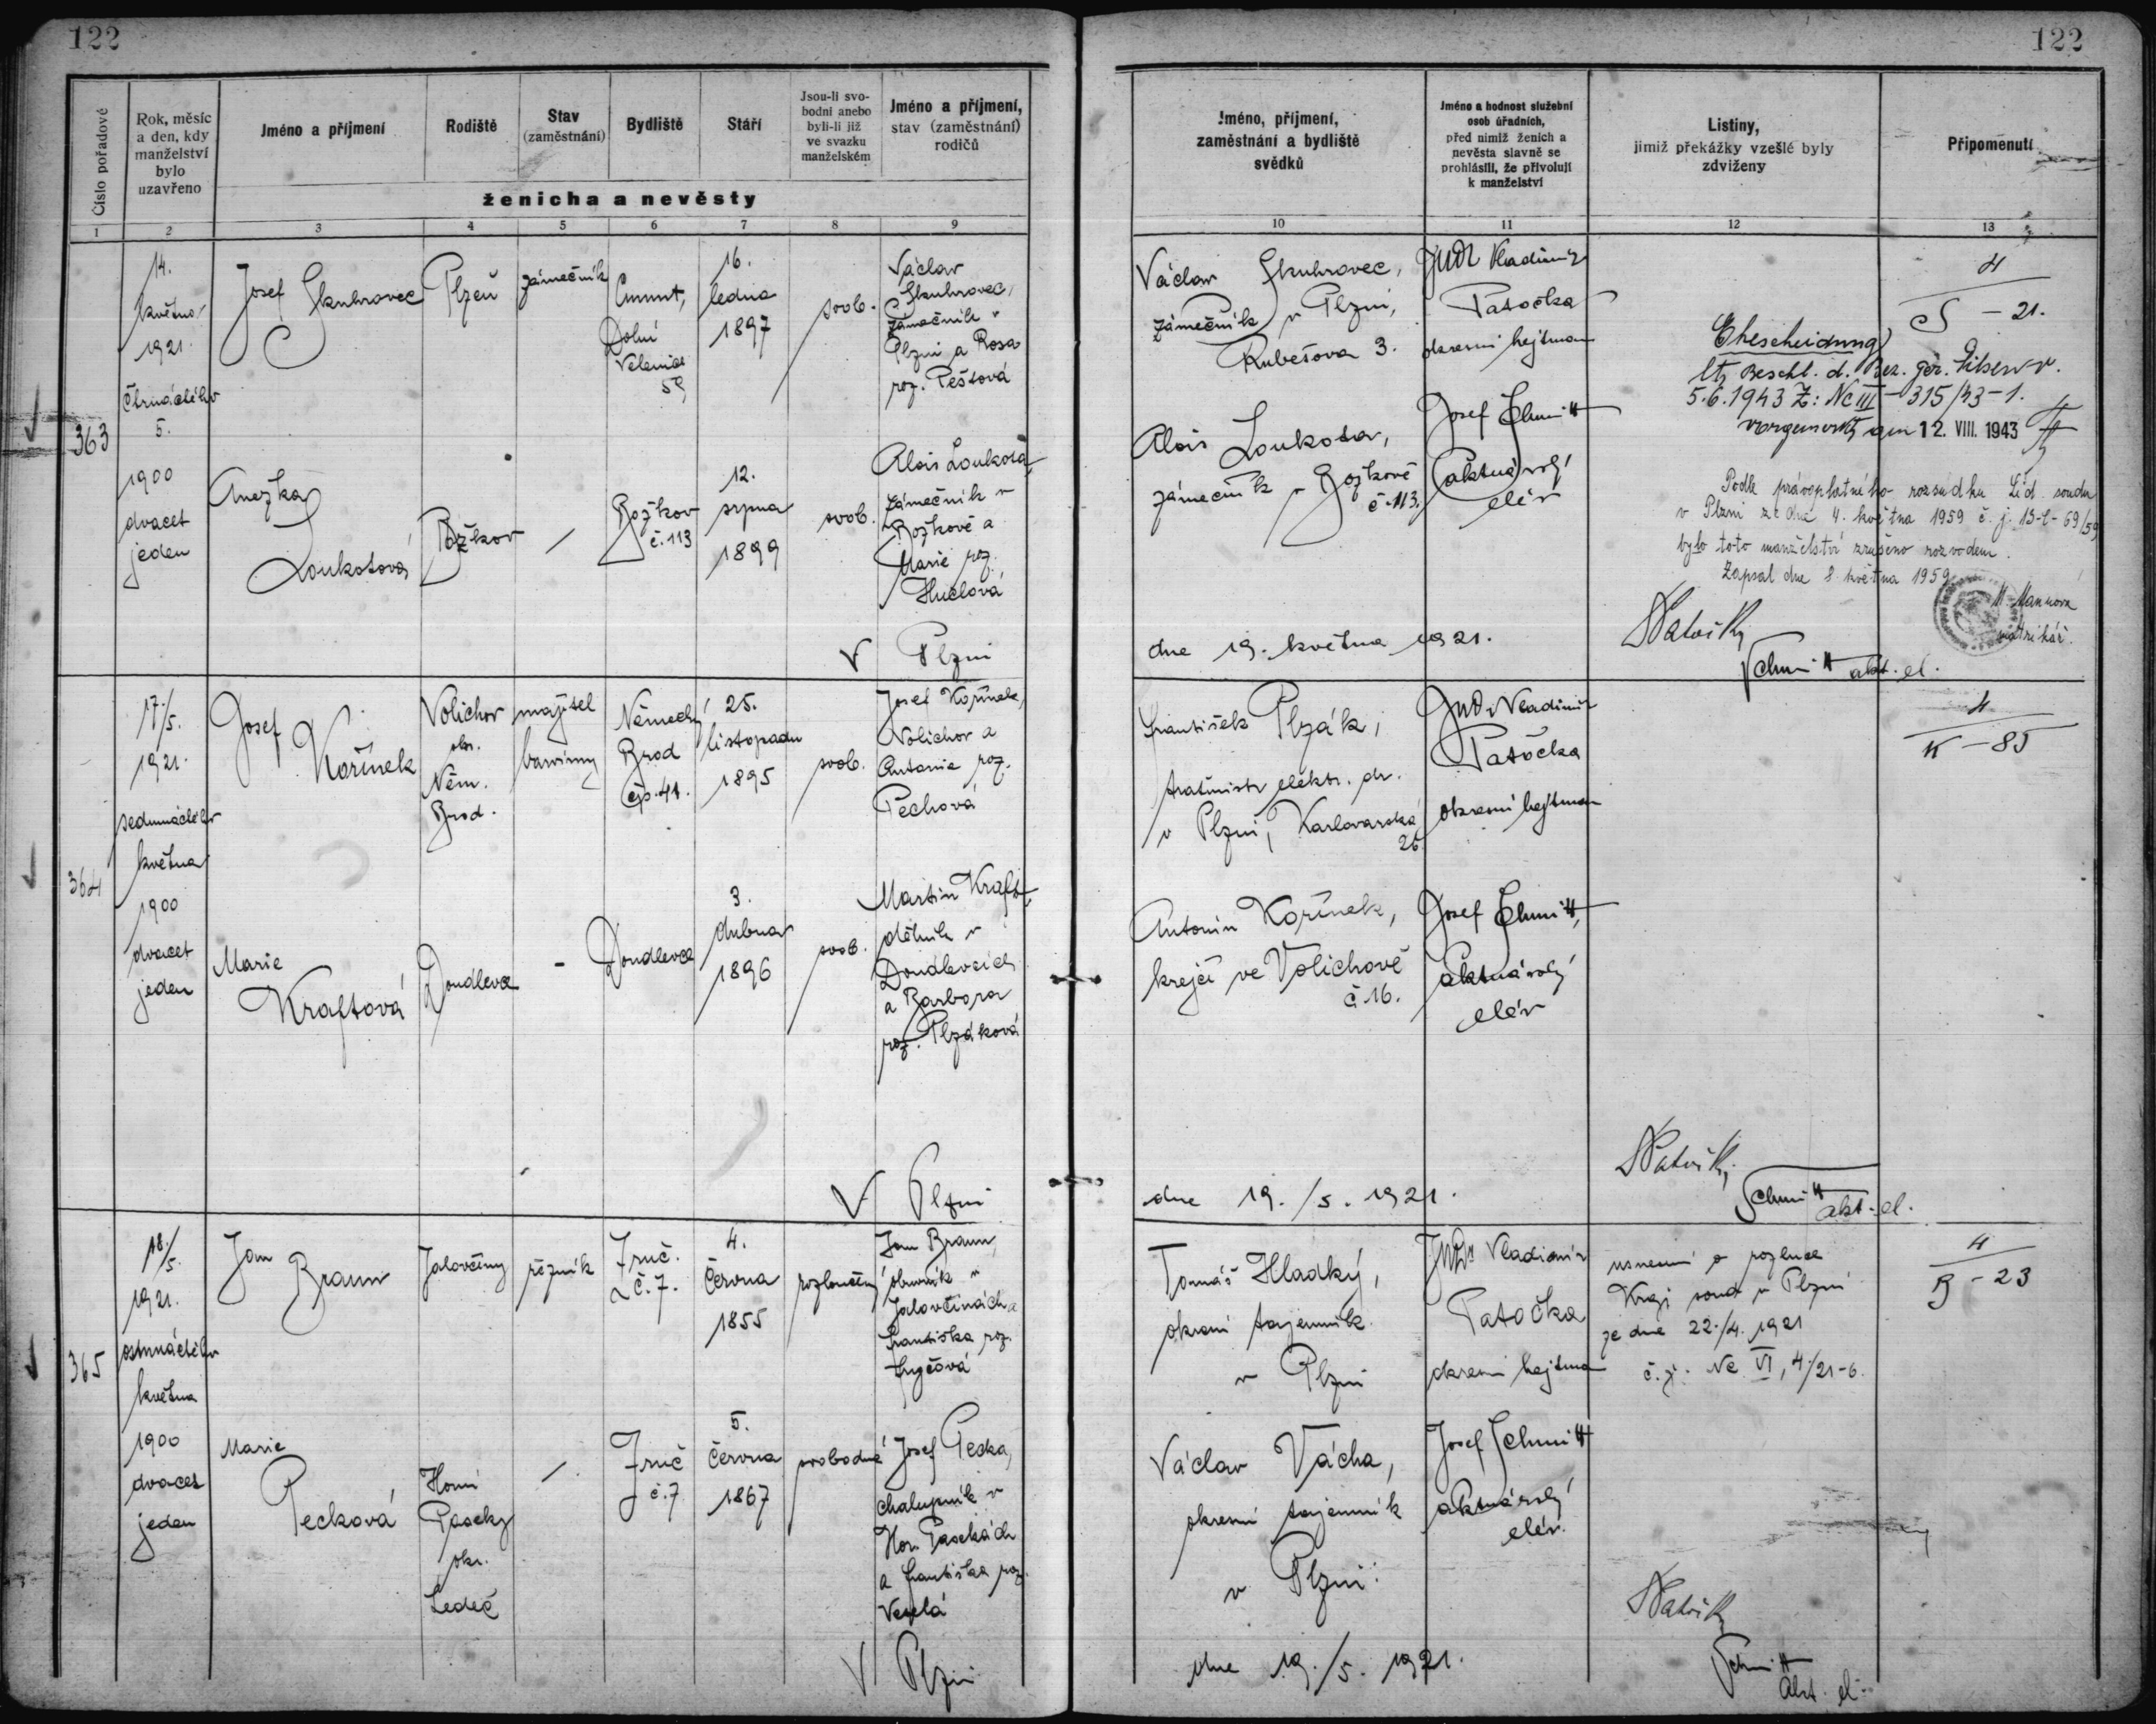 122
122
Číslo pořadové
Rok, měsíc
a den, kdy
manželství
bylo
uzavřeno
Jméno a příjmení
Rodiště
Stav
(zaměstnání)
Bydliště
Stáří
Jsou-li svo-
bodni anebo
byli-li již
ve svazku
manželském
Jméno a příjmení,
stav (zaměstnání)
rodičů
ženicha a nevěsty
1 2 3 4 5 6 7 8 9
Jméno, příjmení,
zaměstnání a bydliště
svědků
Jméno a hodnost služební
osob úřadních,
před nimiž ženich a
nevěsta slavně se
prohlásili, že přivolují
k manželství
Listiny,
jimiž překážky vzešlé byly
zdviženy
Připomenutí
10 11 12 13
363
14.
května
1921.
čtrnáctého
5.
1900
dvacet
jeden
Josef Skuhrovec
Plzeň
zámečník
Dolní
59
16.
ledna
1897
svob.
Václav
Skuhrovec,
zámečník v
Plzni a Rosa
roz. Peštová
Anežka
Loukotová
Božkov
Božkov
č. 113
12.
srpna
1899
svob.
Alois Loukota,
zámečník v
Božkově a
Marie roz.
Huclová
V Plzni
Václav Skuhrovec,
zámečník v Plzni,
Kubešova 3.
JUDr Vladimír
Patočka
okresní hejtman
Alois Loukota,
zámečník v Božkově
č. 113.
Josef Schmitt
aktuárský
elév
4
S - 21.
Ehescheidung
ltg Beschl. d. Bez. Ger. Pilsen v.
5.6.1943 Z: Nc III - 315/43-1.
vorgemerkt am 12. VIII. 1943
Podle právoplatného rozsudku Lid. soudu
v Plzni ze dne 4. května 1959 č. j. 13-C-69/59
bylo toto manželství zrušeno rozvodem.
Zapsal dne 8. května 1959
matrikář.
dne 19. května 1921.
Schmitt akt. el.
364
17./5.
1921.
sedmnáctého
května
1900
dvacet
jeden
Josef
Kořínek
Volichov
okr.
Něm.
Brod.
majitel
barvírny
Německý
Brod
čp. 41.
25.
listopadu
1895
svob.
Josef Kořínek,
Volichov a
Antonie roz.
Pechová
Marie
Kraftová
Doudlevce
-
Doudlevce
3.
dubna
1896
svob.
Martin Kraft,
dělník v
Doudlevcích
a Barbora
roz. Plzáková
V Plzni
František Plzák,
elektr. dr.
v Plzni, Karlovarská
26.
JUDr Vladimír
Patočka
okresní hejtman
Antonín Kořínek,
krejčí ve Volichově
č 16.
Josef Schmitt,
aktuárský
elév
4
K - 85
dne 19./5. 1921.
Schmitt
akt. el.
365
18./5.
1921.
osmnáctého
května
1900
dvacet
jeden
Jan
Braun
Jalovčiny
řezník
Zruč.
č. 7.
4.
června
1855
rozloučený
Jan Braun,
obuvník v
Jalovčinách a
Františka roz.
Marie
Pecková
Horní
Paseky
okr.
Ledeč
Zruč
č. 7
5.
června
1867
svobodná
Josef Pecka,
chalupník v
Hor. Pasekách
a Františka roz.
Veselá
V Plzni
Tomáš Hladký,
okresní tajemník
v Plzni
JUDr Vladimír
Patočka
okresní hejtman
usnesení o rozluce
Kraj. soud v Plzni
ze dne 22./4. 1921
č. j. Nc VI, 4/21-6.
4
B - 23
Václav Vácha,
okresní tajemník
v Plzni.
Josef Schmitt
aktuárský
elév.
dne 19./5. 1921.
Schmitt
akt. el.